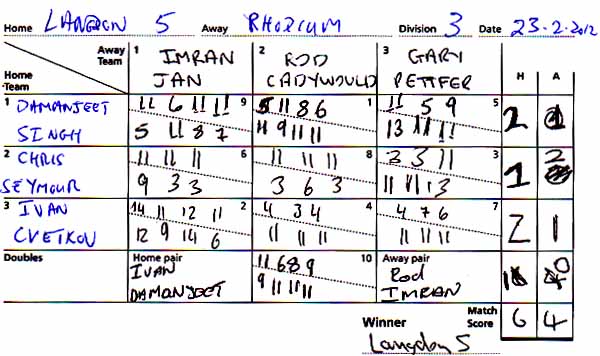 Home LANGDON 5 Away RHODIUM Division 3 Date 23-2-2012
Away Team
Home Team
1 IMRAN JAN
2 ROD CADYWOULD
3 GARY PETTIFER
H A
1 DAMANJEET SINGH
11 6 11 11 9
5 11 8 7
5 11 8 6 1
11 9 11 11
11 5 9 5
13 11 11
2 1
2 CHRIS SEYMOUR
11 11 11 6
9 3 3
11 11 11 8
3 6 3
3 3 11 3
11 11 13
1 2
3 IVAN CVETKOV
14 11 12 11 2
12 9 14 6
4 3 4 4
11 11 11
4 7 6 7
11 11 11
2 1
Doubles
Home pair
IVAN
DAMONJEET
11 6 8 9 10
9 11 11 11
Away pair
Rod
IMRAN
1 0
Winner
Langdon 5
Match Score
6 4